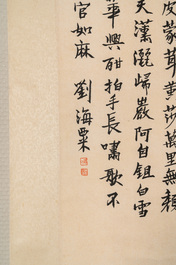 皮蒙茸黄莎萬里無顏
天漢灑歸巖阿自鉏白雪
華興酣拍手長嘯歌不
官如麻
劉海粟